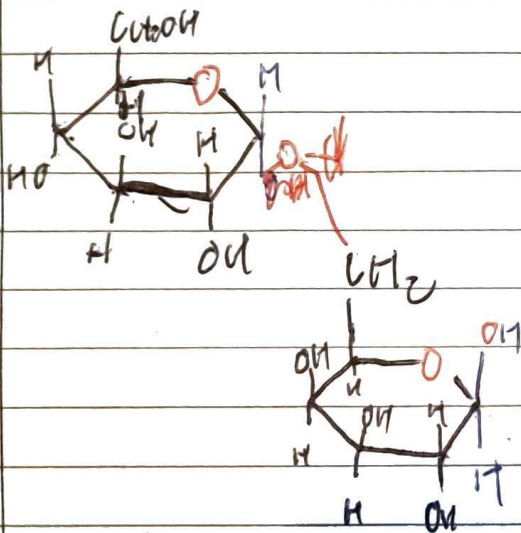 CH2OH
H O H
H
OH H
HO O
H OH
CH2
OH O OH
H
OH H
H H
H OH